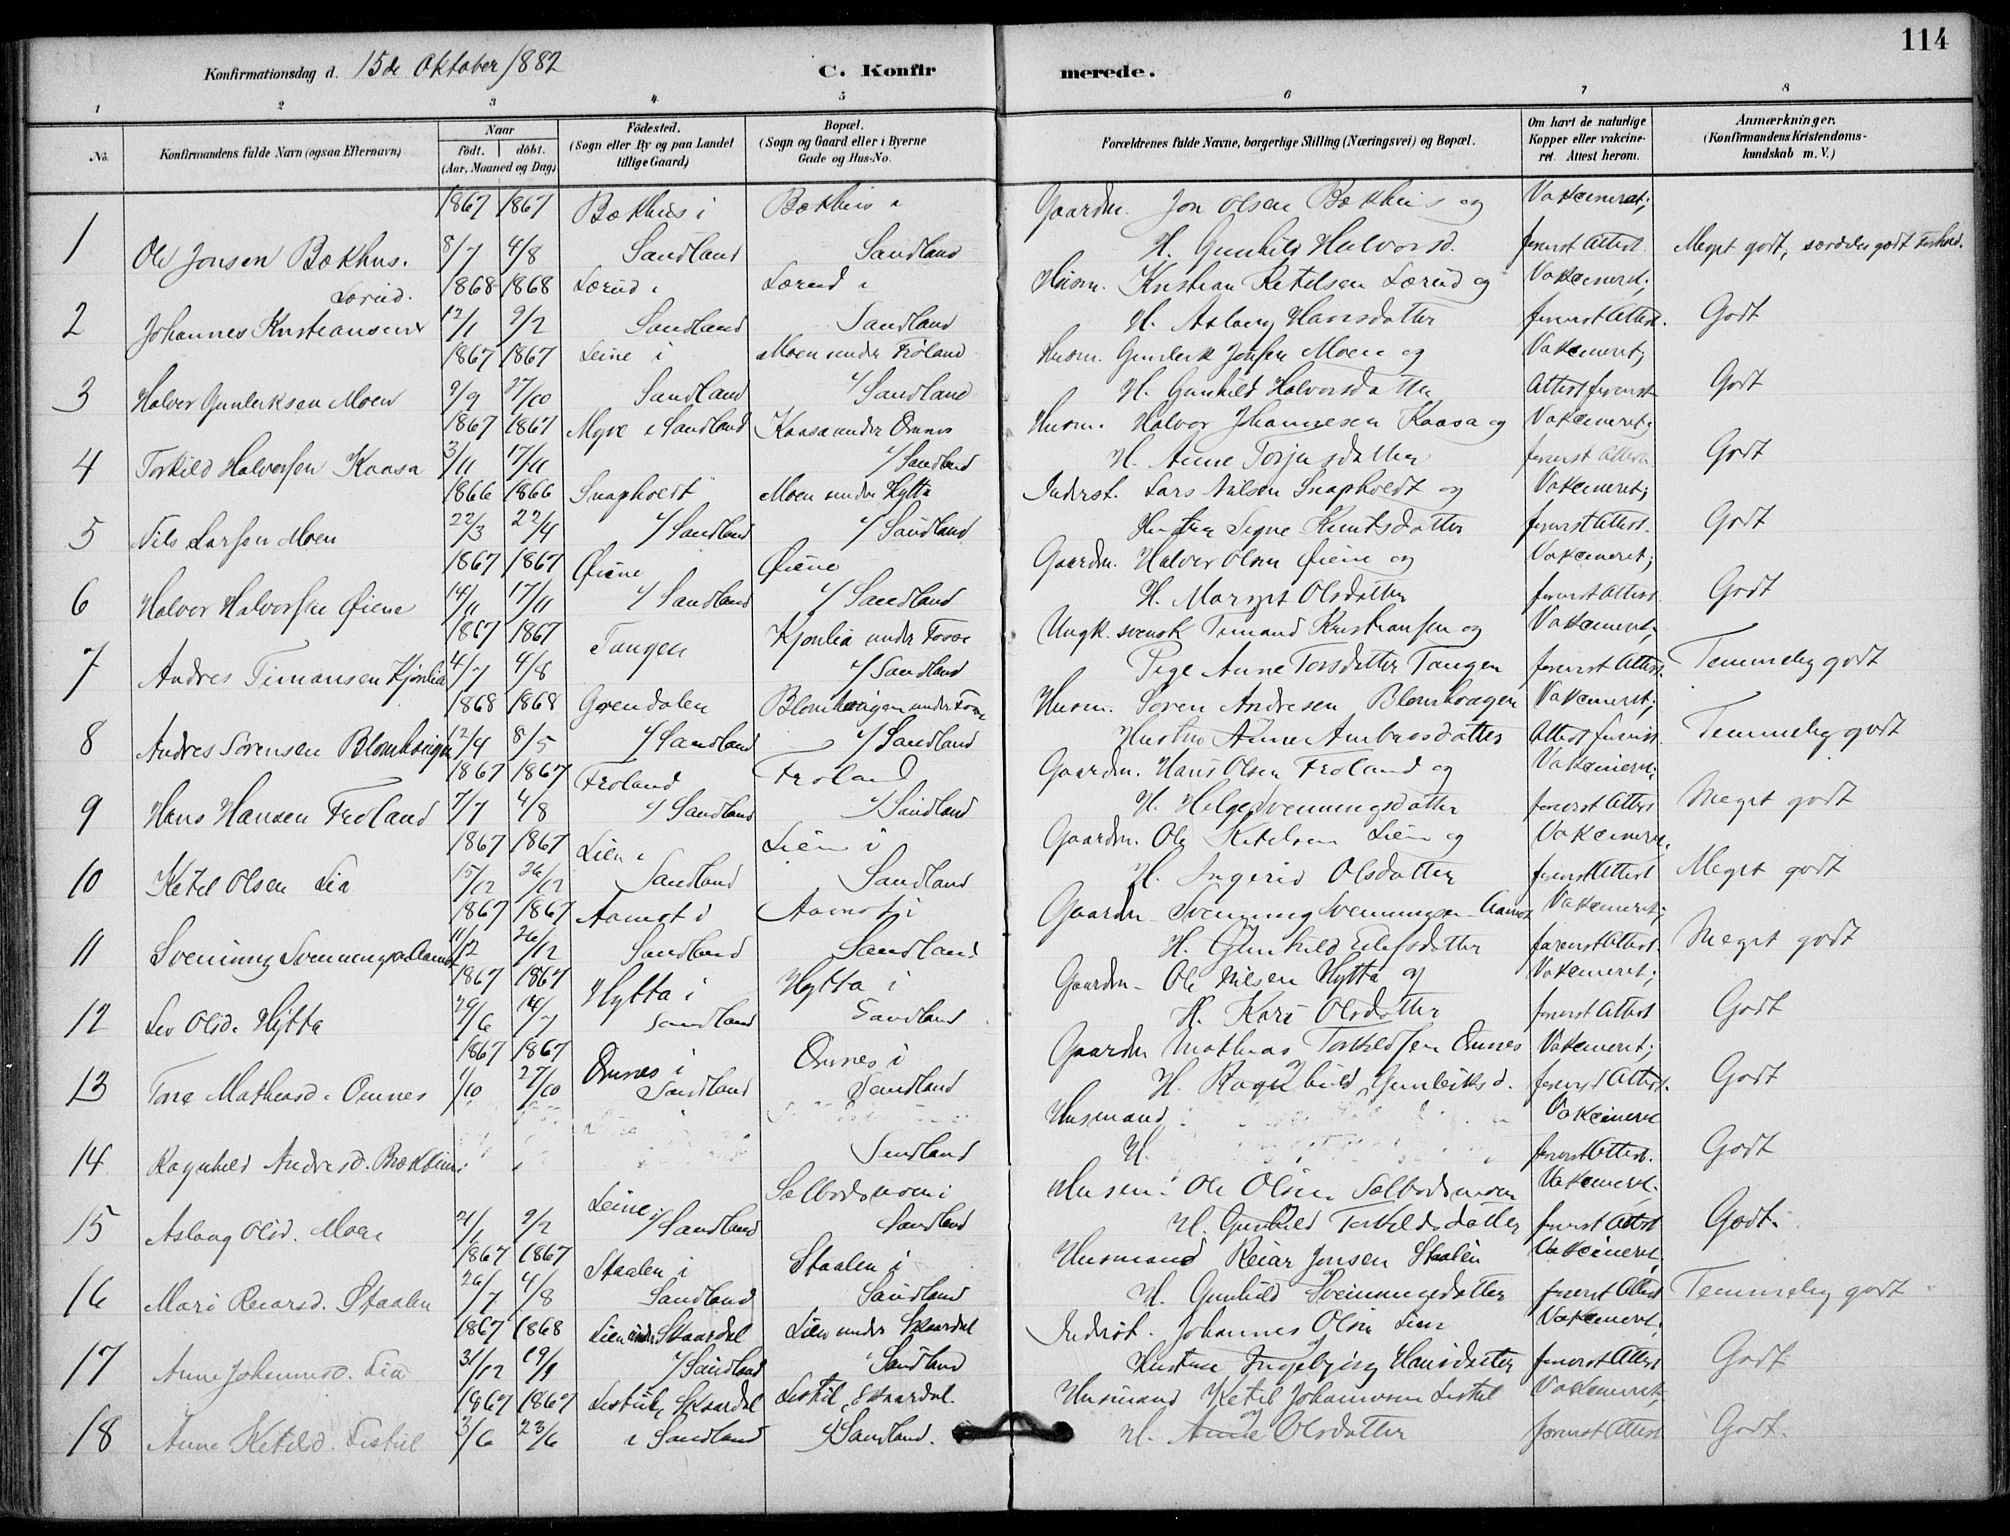 114
Konfirmationsdag d. 15de Oktober 1882
C. Konfirmerede.
1 2 3 4 5 6 7 8
No.
Konfirmandens fulde Navn (ogsaa Efternavn)
Naar
født. døbt.
(Aar, Maaned og Dag)
Fødested.
(Sogn eller By og paa Landet
tillige Gaard)
Bopæl.
(Sogn og Gaard eller i Byerne
Gade og Hus-No.
Forældrenes fulde Navne, borgerlige Stilling (Næringsvei) og Bopæl.
Om havt de naturlige
Kopper eller vakcine-
ret. Attest herom.
Anmærkninger.
(Konfirmandens Kristendoms-
kundskab m. V.)
1867 1867 Bækhus i Bækhus i Gaardm. Jon Olsen Bækhus og Vakcineret;
1 Ole Jonsen Bækhus. 8/7 4/8 Sandland Sandland H. Gunhild Halvorsd. forevist Attest Meget godt, særdeles godt Forhold.
Lørud. 1868 1868 Lørud i Lørud i Husm. Kristian Ketilsen Lørud og Vakcineret;
2 Johannes Kristiansen 12/1 9/2 Sandland Sandland H. Aslaug Hansdatter forevist Attest. Godt
1867 1867 Leine i Moen under Frøland Husm. Gunlek Jonsen Moen og Vakcineret;
3 Halvor Gunleksen Moen 9/9 27/10 Sandland i Sandland H. Gunhild Halvorsdatter Attest forevist Godt
1867 1867 Myre i Sandland Kaasa under Omnes Husm. Halvor Johannesen Kaasa og Vakcineret;
4 Torkild Halvorsen Kaasa 3/11 17/11 i Sandland H. Anne Torjusdatter forevist Attest Godt
1866 1866 Snapholdt Moen under Hytta Inderst. Lars Nilsen Snapholdt og Vakcineret;
5 Nils Larsen Moen 22/3 22/4 i Sandland i Sandland Signe Knutsdatter forevist Attest. Godt
1867 1867 Øiene Øiene Gaardm. Halvor Olsen Øiene og Vakcineret;
6 Halvor Halvorsen Øiene 14/11 17/11 i Sandland i Sandland H. Margit Olsdatter forevist Attest. Godt
1867 1867 Tangen Kjønlia under Ungk. svensk Timand Kristiansen og Vakcineret;
7 Andres Timansen Kjønlia 4/7 4/8 i Sandland Pige Anne Torsdatter Tangen forevist Attest. Temmelig godt
1868 1868 Grøndalen Blomhaugen under Husm. Søren Andresen Blomhaugen Vakcineret;
8 Andres Sørensen Blomhaugen 12/4 8/5 i Sandland i Sandland Hustru Anne Ambrosdatter Attest forevist. Temmelig godt
1867 1867 Frøland Frøland Gaardm. Hans Olsen Frøland og Vakcineret;
9 Hans Hansen Frøland 7/7 4/8 i Sandland i Sandland H. Helge Svenningsdatter forevist Attest Meget godt
1867 1867 Lien i Lien i Gaardm. Ole Ketelsen Lien og Vakcineret.
10 Ketel Olsen Lia 15/12 26/12 Sandland Sandland H. Ingerid Olsdatter forevist Attest Meget godt
1867 1867 Aamot i Aamot i Gaardm Svenning Svenningsen Aamot Vakcineret;
11 Svenning Svenningsen Aamot 11/12 26/12 Sandland Sandland H. Gunhild Eilefsdatter forevist Attest. Meget godt
1867 1867 Hytta i Hytta i Gaardm Ole Nilsen Hytta og Vakcineret;
12 Liv Olsd. Hytta 29/6 14/7 Sandland Sandland H. Kari Olsdatter forevist Attest Godt
1867 1867 Omnes i Omnes i Gaardm Mathias Torkildsen Omnes Vakcineret;
13 Tone Mathiasd. Omnes 1/10 27/10 Sandland Sandland H. Ragnhild Gunleiksd. forevist Attest. Godt
Husmand Vakcineret
14 Ragnhild Andresd. Bækhus Sandland H. forevist Attest. Godt
Leine i Solbodsmoen i Husm. Ole Olsen Solbodsmoen Vakcineret.
15 Aslaug Olsd. Moen 21/1 9/2 i Sandland Sandland H. Gunhild Torkildsdatter forevist Attest Godt.
1867 1867 Staalen i Staalen i Husmand Reiar Jonsen Staalen Vakcineret;
16 Mari Reiarsd. Staalen 26/7 4/8 Sandland Sandland H. Gunhild Svenningsdatter forevist Attest Temmelig godt
1867 1868 Lien under Skaardal Lien under Skaardal Inderst. Johannes Olsen Lien Vakcineret;
17 Anne Johannesd. Lia 31/12 19/1 i Sandland i Sandland Hustru Ingebjørg Hansdatter forevist Attest Godt
1867 1867 Listul, Skaardal Listul, Skaardal. Husmand Ketil Johannesen Listul Vakcineret;
18 Anne Ketilsd. Listul 3/6 23/6 i Sandland i Sandland. H. Anne Olsdatter forevist Attest Godt.